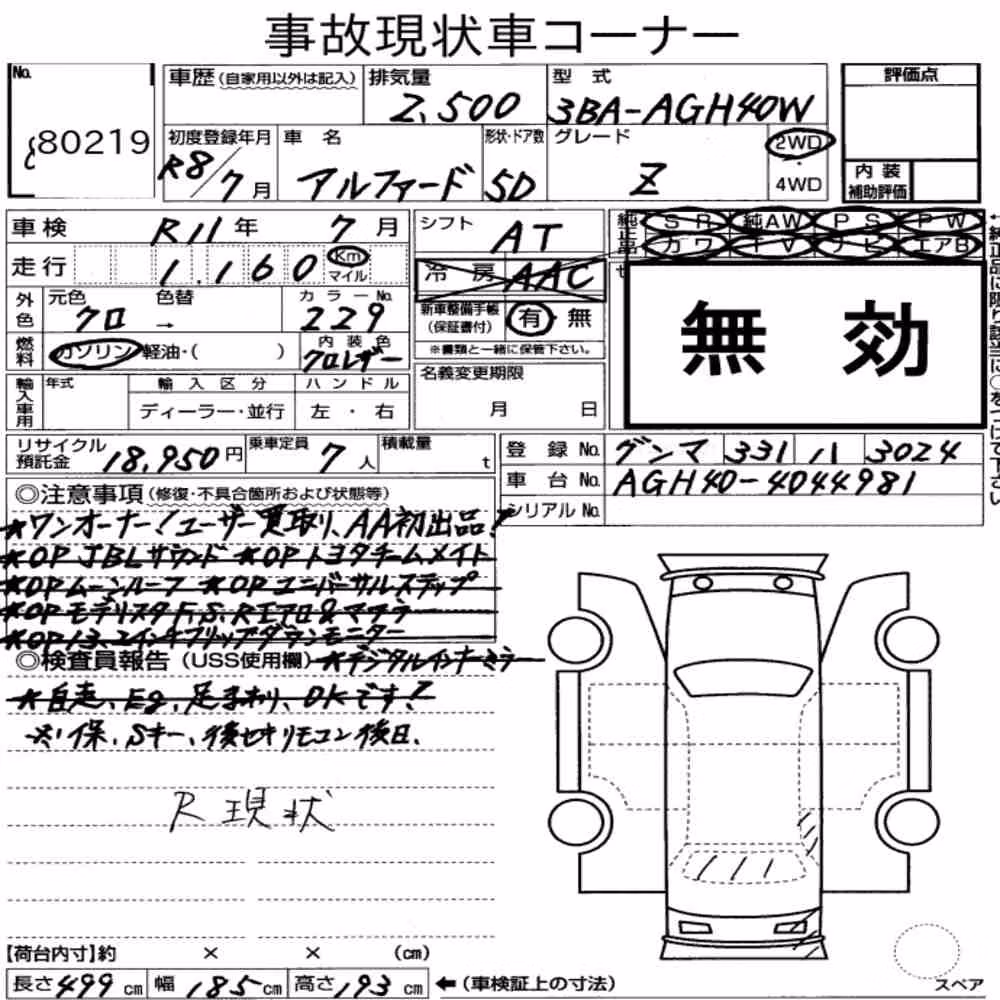 事故現状車コーナー
No.
80219
車歴(自家用以外は記入)
排気量
2,500
型式
3BA-AGH40W
評価点
初度登録年月
R8/7月
車名
アルファード
形状・ドア数
5D
グレード
Z
2WD
4WD
内装
補助評価
車検 R11年 7月
走行 1,160 Km マイル
シフト AT
冷房 AAC
純正品 SR 純AW PS PW
カワ TV ナビ エアB
外色 元色 クロ 色替 → カラーNo. 229
燃料 ガソリン・軽油・( ) 内装色 クロレザー
新車整備手帳(保証書付) 有・無
※書類と一緒に保管下さい。
無効
輸入車用 年式 輸入区分 ハンドル
ディーラー・並行 左・右
名義変更期限
月 日
リサイクル預託金 18,950円 乗車定員 7人 積載量 t
登録No. グンマ 331 ハ 3024
車台No. AGH40-4044981
シリアルNo.
◎注意事項(修復・不具合箇所および状態等)
★ワンオーナー!ユーザー買取り、AA初出品!
★OP JBLサウンド ★OPトヨタチームメイト
★OPムーンルーフ ★OPユニバーサルステップ
★OPモデリスタF,S,Rエアロ&マフラー
★OP13.2インチフリップダウンモニター
◎検査員報告(USS使用欄) ★デジタルインナーミラー
★自走、Eg、足まわり、OKです!
※保、Sキー、後セキリモコン後日、
R現状
【荷台内寸】約 × × (cm)
長さ499cm 幅185cm 高さ193cm ←(車検証上の寸法)
スペア